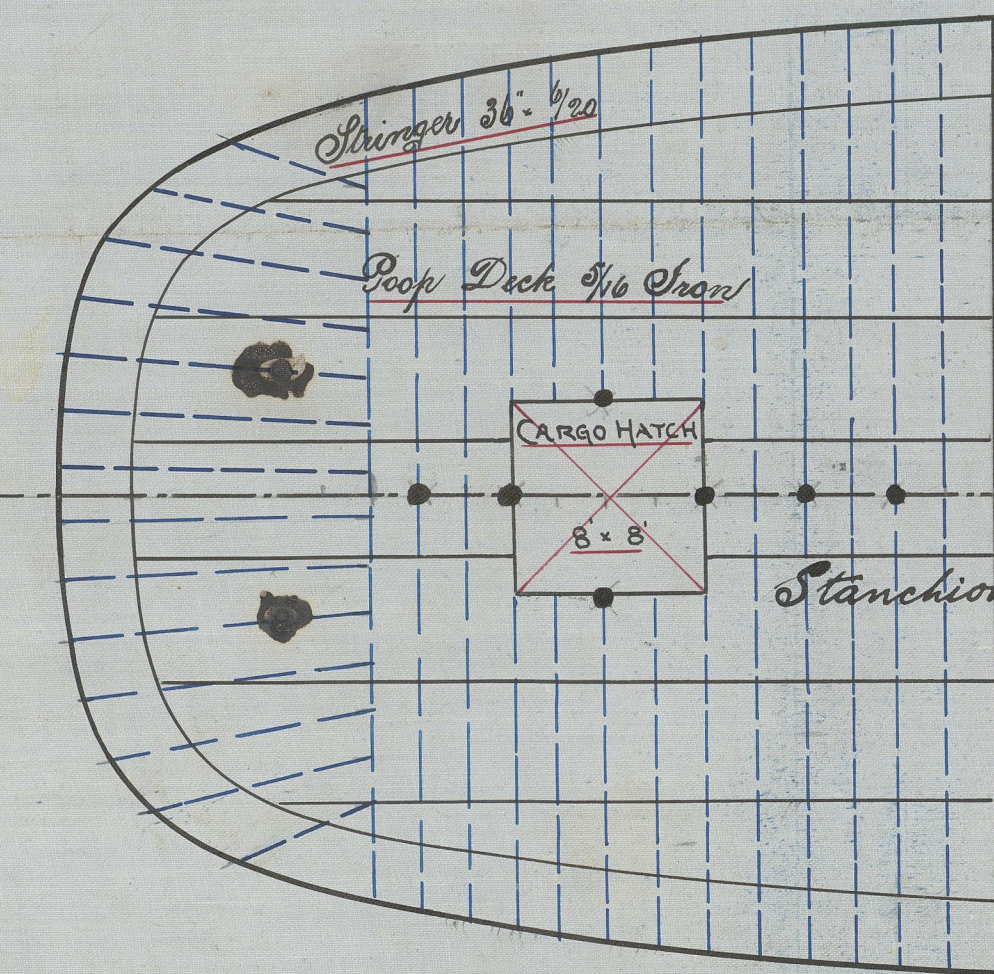 Stringer 36" × 6/20
Poop Deck 5/16 Iron
CARGO HATCH
8' × 8'
Stanchion